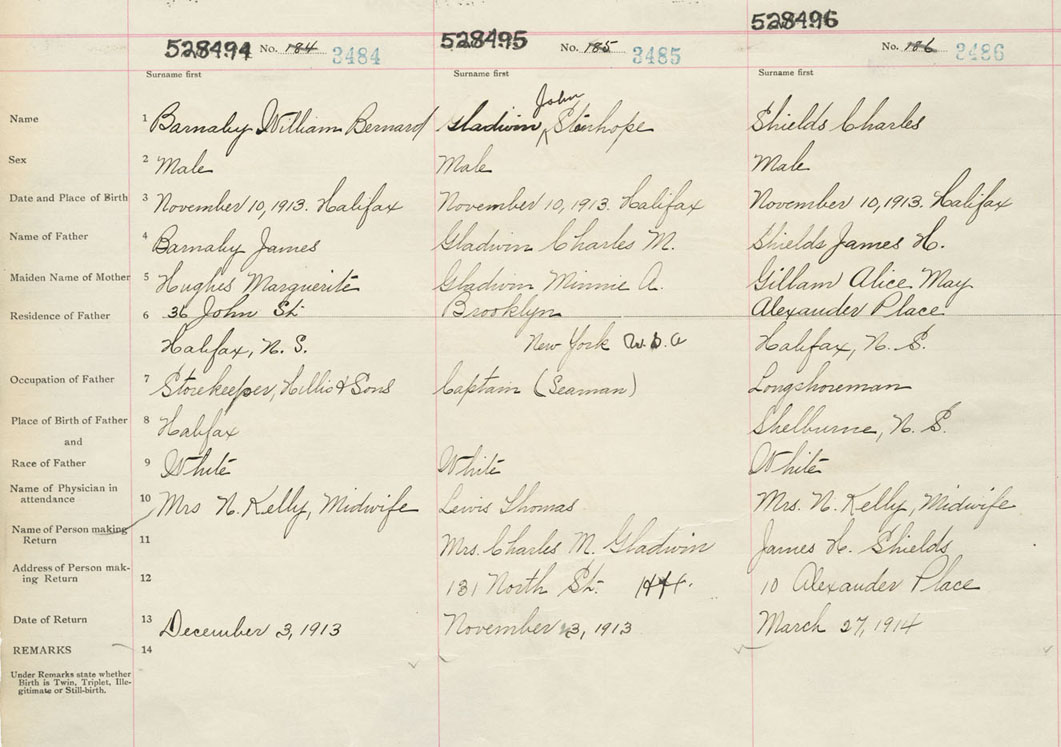 528494 No. 184 3484 528495 No. 185 3485 528496 No. 186 3486
Surname first Surname first Surname first
Name 1 Barnaby William Bernard Gladwin John Stenhope Shields Charles
Sex 2 Male Male Male
Date and Place of Birth 3 November 10, 1913. Halifax November 10, 1913. Halifax November 10, 1913. Halifax
Name of Father 4 Barnaby James Gladwin Charles M. Shields James H.
Maiden Name of Mother 5 Hughes Marguerite Gladwin Minnie A. Gillam Alice May
Residence of Father 6 36 John St. Brooklyn Alexander Place
Halifax, N. S. New York U.S.A Halifax, N. S.
Occupation of Father 7 Storekeeper, Hillis & Sons Captain (Seaman) Longshoreman
Place of Birth of Father 8 Halifax Shelburne, N. S.
and
Race of Father 9 White White White
Name of Physician in
attendance 10 Mrs N. Kelly, Midwife Lewis Thomas Mrs. N. Kelly, Midwife
Name of Person making
Return 11 Mrs. Charles M. Gladwin James H. Shields
Address of Person mak-
ing Return 12 131 North St. Hfx. 10 Alexander Place
Date of Return 13 December 3, 1913 November 3, 1913 March 27, 1914
REMARKS 14
Under Remarks state whether
Birth is Twin, Triplet, Ille-
gitimate or Still-birth.